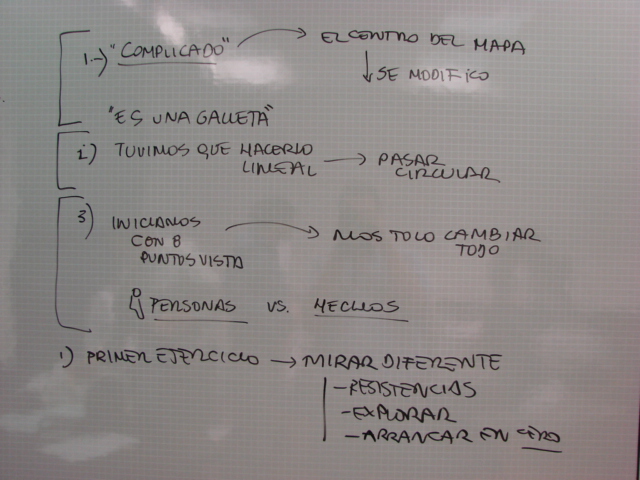 1.-) "COMPLICADO" → EL CENTRO DEL MAPA
↓ SE MODIFICO
"ES UNA GALLETA"
2) TUVIMOS QUE HACERLO → PASAR
LINEAL CIRCULAR
3) INICIAMOS → NOS TOCO CAMBIAR
CON 8 TODO
PUNTOS VISTA
PERSONAS VS. HECHOS
1) PRIMER EJERCICIO → MIRAR DIFERENTE
- RESISTENCIAS
- EXPLORAR
- ARRANCAR EN CERO